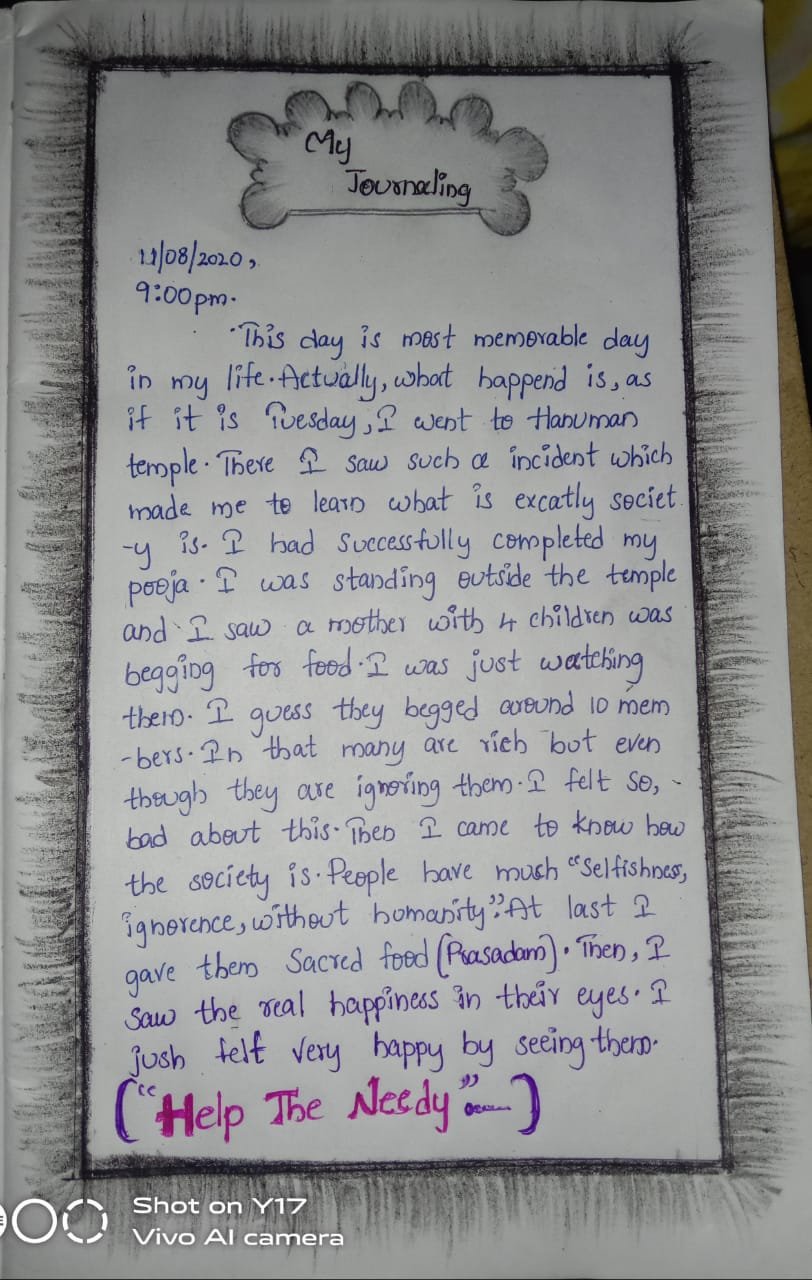 My
Journaling
11/08/2020,
9:00pm.
"This day is most memorable day
in my life. Actually, what happend is, as
if it is Tuesday, I went to Hanuman
temple. There I saw such a incident which
made me to learn what is excatly societ
-y is. I had Successfully completed my
pooja. I was standing outside the temple
and I saw a mother with 4 children was
begging for food. I was just watching
them. I guess they begged around 10 mem
-bers. In that many are rich but even
though they are ignoring them. I felt so,
bad about this. Then I came to know how
the society is. People have much "Selfishness,
ignorence, without humanity". At last I
gave them Sacred food (Prasadam). Then, I
Saw the real happiness in their eyes. I
jush felt very happy by seeing them.
("Help The Needy")
Shot on Y17
Vivo AI camera